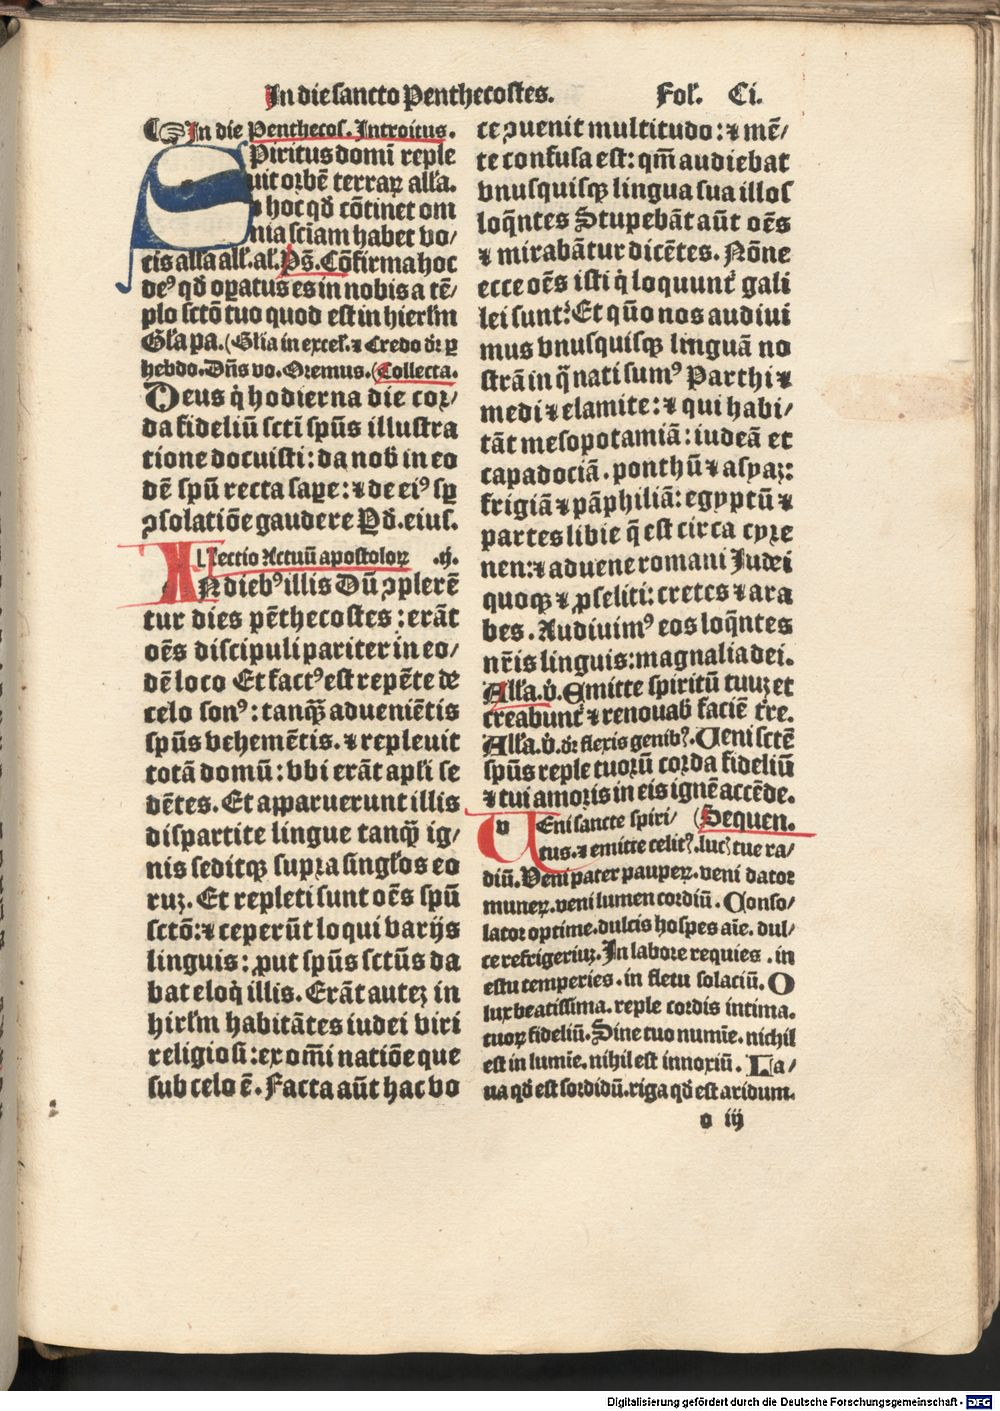 In die sancto Penthecostes. Fol'. Ci.
¶☞In die Penthecos. Introitus.
SPiritus domī reple
uit orbē terraꝝ all'a.
⁊ hoc qd̄ cōtinet om
nia sciam habet vo/
cis all'a all'. al'. Ps̄. Cōfirma hoc
deꝰ qd̄ oꝑatus es in nobis a tē/
plo sctō tuo quod est in hierl'm
Gl'a pa. (Gl'ia in excel'. ⁊ Credo dr̄ ꝑ
hebdo. Dn̄s vo. Oremus. (Collecta.
Deus q̇ hodierna die cor/
da fideliū scti sp̄us illustra
tione docuisti: da nob' in eo
dē sp̄u recta saꝑe: ⁊ de eiꝰ sꝑ
ꝯsolatiōe gaudere Pd̄. eius.
Lectio Actuū apostoloꝝ .ij.
IN diebꝰ illis Dū ꝯplerē
tur dies pēthecostes: erāt
oēs discipuli pariter in eo/
dē loco Et factꝰ est repēte de
celo sonꝰ: tanqꝫ̄ aduenietis
sp̄us vehemētis. ⁊ repleuit
totā domū: vbi erāt apl'i se
dētes. Et apparuerunt illis
dispartite lingue tanqꝫ̄ ig/
nis seditqꝫ supra singl'os eo
ruꝫ. Et repleti sunt oēs sp̄u
sctō: ⁊ ceperūt loqui varijs
linguis: ꝓut sp̄us sctūs da
bat eloq̇ illis. Erāt auteꝫ in
hirl'm habitātes iudei viri
religiosi: ex om̄i natiōe que
sub celo ē. Facta aūt hac vo
ce ꝯuenit multitudo: ⁊ mē/
te confusa est: qm̄ audiebat
vnusquisqꝫ lingua sua illos
loq̄ntes Stupebāt aūt oēs
⁊ mirabātur dicētes. Nōne
ecce oēs isti q̇ loquunt' gali
lei sunt: Et quō nos audiui
mus vnusquisqꝫ linguā no
strā in q̄ nati sumꝰ Parthi ⁊
medi ⁊ elamite: ⁊ qui habi/
tāt mesopotamiā: iudeā et
capadociā. ponthū ⁊ asyaꝫ:
frigiā ⁊ pāphiliā: egyptū ⁊
partes libie q̄ est circa cyre
nen: ⁊ aduene romani Iudei
quoqꝫ ⁊ ꝓseliti: cretes ⁊ ara
bes. Audiuimꝰ eos loq̄ntes
nr̄is linguis: magnalia dei.
All'a. v̇. Emitte spiritū tuuꝫ et
creabunt' ⁊ renouab' faciē t're.
All'a. v̇. dr̄ flexis genibꝰ. Ueni sctē
sp̄us reple tuorū corda fideliū
⁊ tui amoris in eis ignē accēde.
UEni sancte spiri/ (Sequen.
tus. ⁊ emitte celitꝰ. lucꝭ tue ra/
diū. Veni pater pauperꝝ. veni dator
muneꝝ. veni lumen cordiū. Conso/
lator optime. dulcis hospes aīe. dul/
ce refrigeriuꝫ. In labore requies. in
estu temperies. in fletu solaciū. O
lux beatissima. reple cordis intima.
tuoꝝ fideliū. Sine tuo numīe. nichil
est in lumīe. nihil est innoxiū. La/
ua qd̄ est sordidū. riga qd̄ est aridum.
o iij
Digitalisierung gefördert durch die Deutsche Forschungsgemeinschaft - DFG